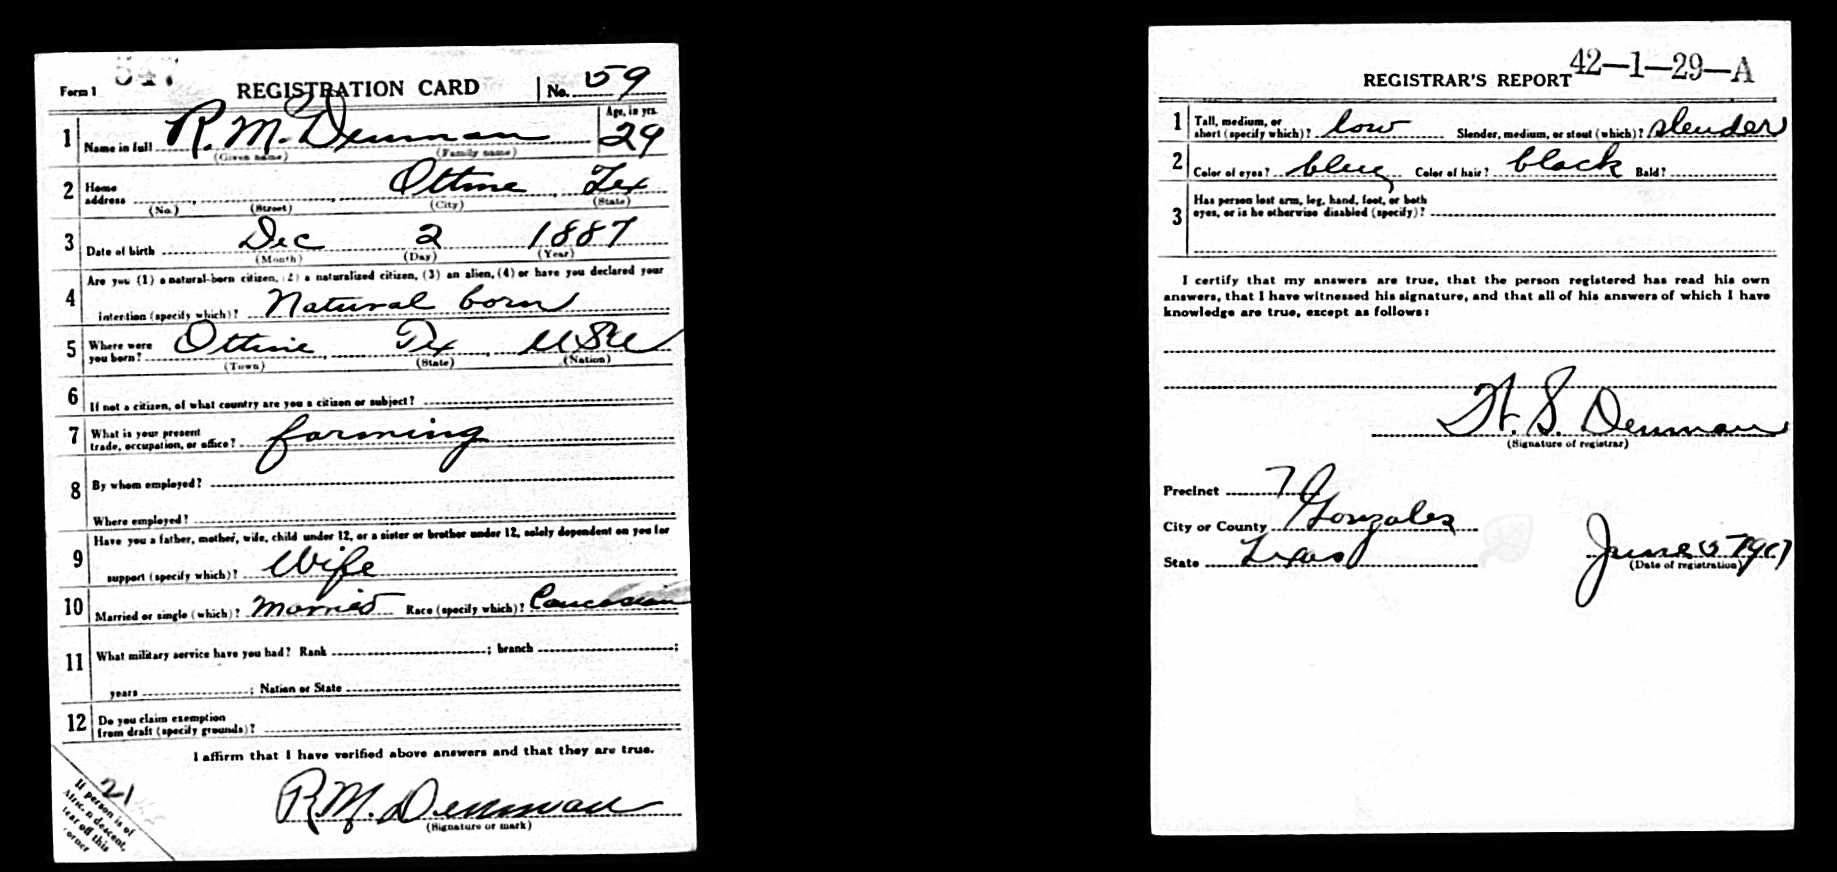 Form 1 547 REGISTRATION CARD No. 59
1 Name in full R. M. Denman Age, in yrs. 29
(Given name) (Family name)
2 Home address Ottine Tex
(No.) (Street) (City) (State)
3 Date of birth Dec 2 1887
(Month) (Day) (Year)
4 Are you (1) a natural-born citizen, (2) a naturalized citizen, (3) an alien, (4) or have you declared your
intention (specify which)? Natural born
5 Where were you born? Ottine Tex USA
(Town) (State) (Nation)
6 If not a citizen, of what country are you a citizen or subject?
7 What is your present
trade, occupation, or office? farming
8 By whom employed?
Where employed?
9 Have you a father, mother, wife, child under 12, or a sister or brother under 12, solely dependent on you for
support (specify which)? Wife
10 Married or single (which)? Married Race (specify which)? Caucasian
11 What military service have you had? Rank ; branch ;
years ; Nation or State
12 Do you claim exemption
from draft (specify grounds)?
I affirm that I have verified above answers and that they are true.
R. M. Denman
(Signature or mark)
21
If person is of
African descent,
tear off this
corner
REGISTRAR'S REPORT 42-1-29-A
1 Tall, medium, or
short (specify which)? low Slender, medium, or stout (which)? slender
2 Color of eyes? blue Color of hair? black Bald?
3 Has person lost arm, leg, hand, foot, or both
eyes, or is he otherwise disabled (specify)?
I certify that my answers are true, that the person registered has read his own
answers, that I have witnessed his signature, and that all of his answers of which I have
knowledge are true, except as follows:
W. S. Denman
(Signature of registrar)
Precinct 7
City or County Gonzales
State Texas June 5 1917
(Date of registration)